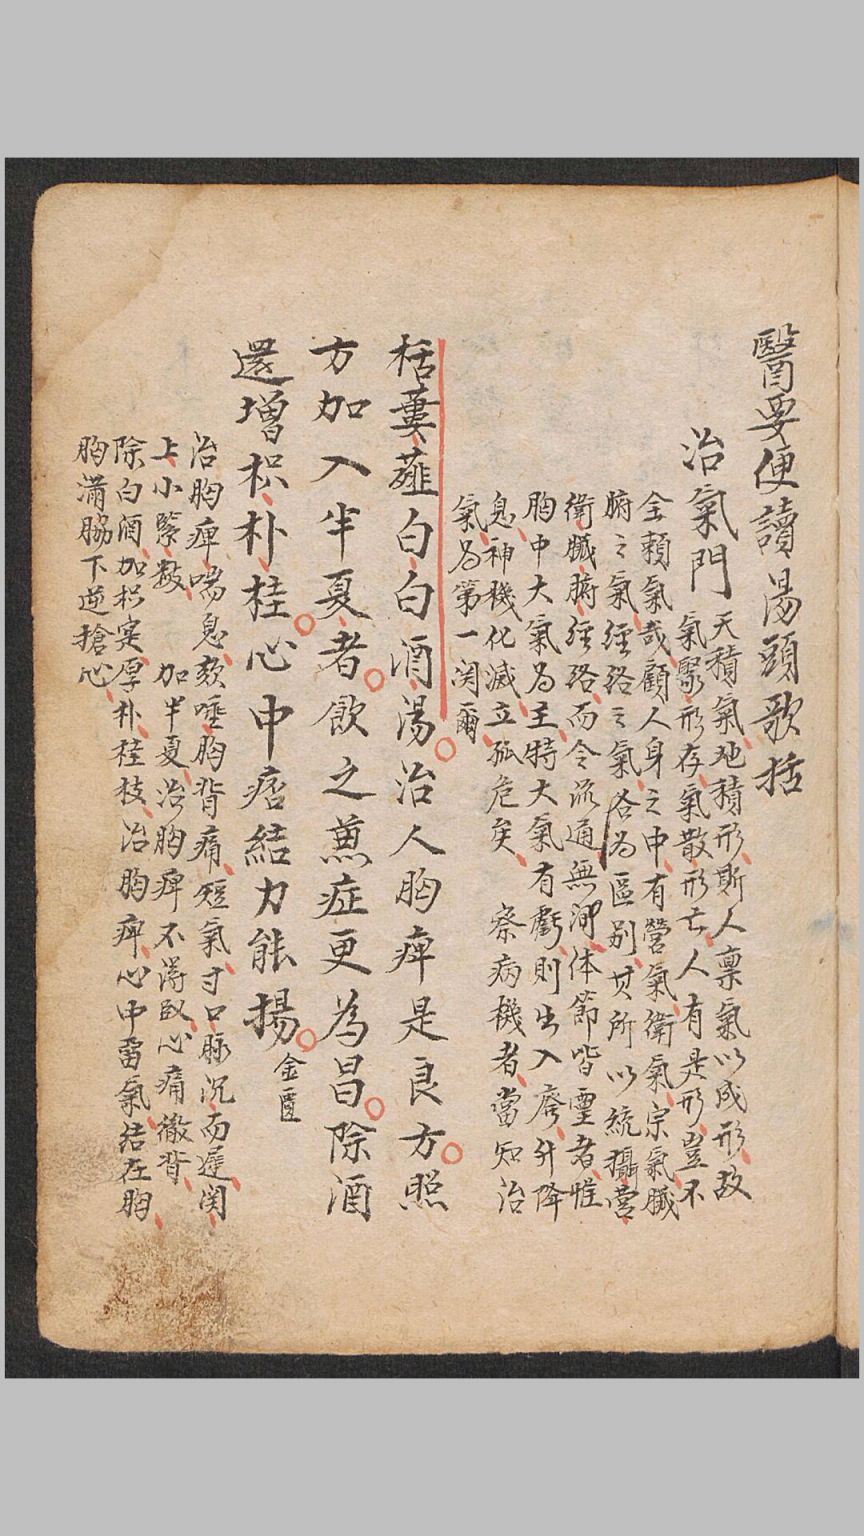 醫要便讀湯頭歌括
治氣門
天積氣地積形斯人稟氣以成形故
氣聚形存氣散形亡人有是形豈不
全賴氣哉顧人身之中有營氣衛氣宗氣臟
腑之氣經絡之氣各為區別其所以統攝營
衛臟腑經絡而令流通無渖体節皆靈者惟
胸中大氣為主特大氣有虧則出入廢升降
息神機化滅立孤危矣 察病機者當知治
氣為第一関爾
栝蔞薤白白酒湯治人胸痺是良方照
方加入半夏者飲之蒸症更為昌除酒
還增枳朴桂心中痞結力能揚金匱
治胸痺喘息欬唾胸背痛短氣寸口脉沉而遲関
上小緊数 加半夏治胸痺不得臥心痛徹背
除白酒加枳实厚朴桂枝治胸痺心中畱氣结在胸
胸滿脇下逆搶心